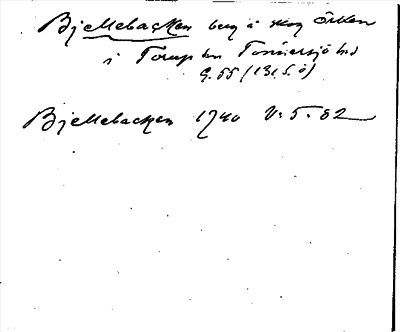 Bjellebacken berg å skog Örken
i Torup sn Tönnersjö hd
G. 55 (131 S. ö)
Bjellebacken 1740 V: 5. 82